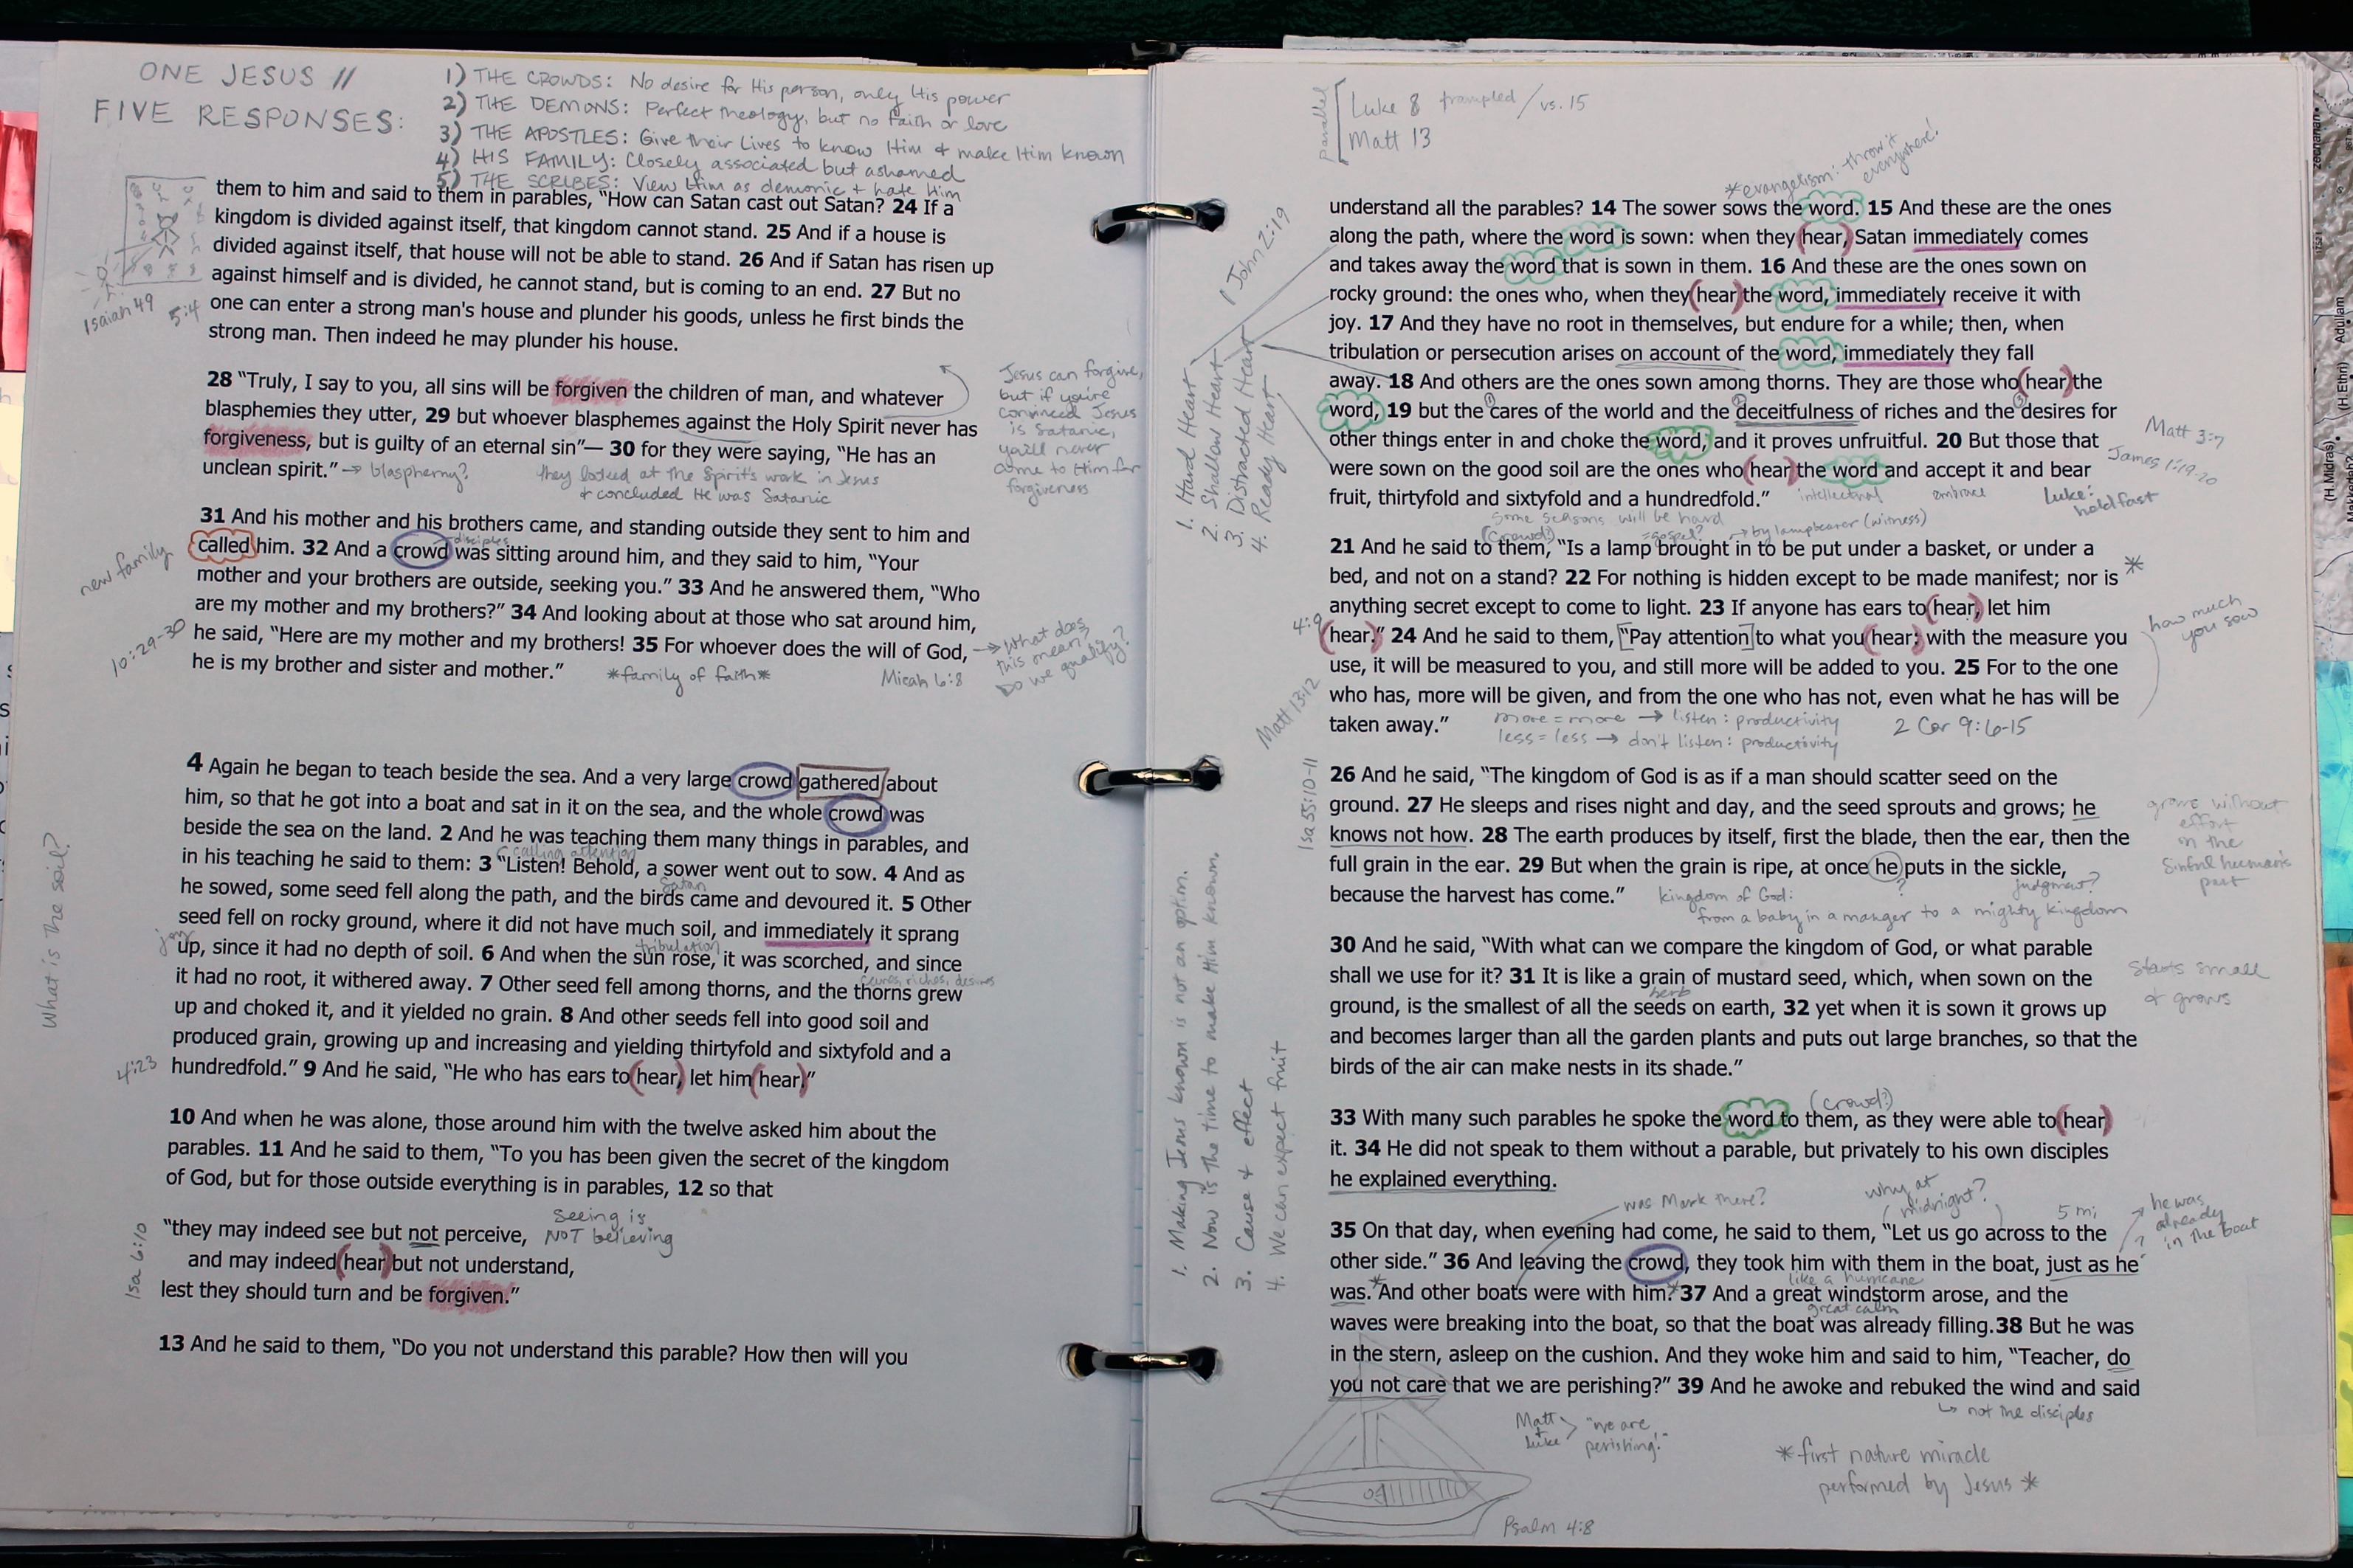 ONE JESUS //
FIVE RESPONSES:
1) THE CROWDS: No desire for His person, only His power
2) THE DEMONS: Perfect theology, but no faith or love
3) THE APOSTLES: Give their Lives to know Him + make Him known
4) HIS FAMILY: Closely associated but ashamed
5) THE SCRIBES: View Him as demonic + hate Him
them to him and said to them in parables, “How can Satan cast out Satan? 24 If a
kingdom is divided against itself, that kingdom cannot stand. 25 And if a house is
divided against itself, that house will not be able to stand. 26 And if Satan has risen up
against himself and is divided, he cannot stand, but is coming to an end. 27 But no
one can enter a strong man's house and plunder his goods, unless he first binds the
strong man. Then indeed he may plunder his house.
Isaiah 49
5:4
28 “Truly, I say to you, all sins will be forgiven the children of man, and whatever
blasphemies they utter, 29 but whoever blasphemes against the Holy Spirit never has
forgiveness, but is guilty of an eternal sin”— 30 for they were saying, “He has an
unclean spirit.” → blasphemy?
they looked at the Spirit's work in Jesus
+ concluded He was Satanic
Jesus can forgive,
but if you're
convinced Jesus
is Satanic,
you'll never
come to Him for
forgiveness
31 And his mother and his brothers came, and standing outside they sent to him and
disciples
called him. 32 And a crowd was sitting around him, and they said to him, “Your
mother and your brothers are outside, seeking you.” 33 And he answered them, “Who
are my mother and my brothers?” 34 And looking about at those who sat around him,
he said, “Here are my mother and my brothers! 35 For whoever does the will of God,
he is my brother and sister and mother.”
new family
10:29-30
*family of faith*
Micah 6:8
→ What does
this mean?
Do we qualify?
4 Again he began to teach beside the sea. And a very large crowd gathered about
him, so that he got into a boat and sat in it on the sea, and the whole crowd was
beside the sea on the land. 2 And he was teaching them many things in parables, and
calling attention
in his teaching he said to them: 3 “Listen! Behold, a sower went out to sow. 4 And as
Satan
he sowed, some seed fell along the path, and the birds came and devoured it. 5 Other
seed fell on rocky ground, where it did not have much soil, and immediately it sprang
joy
tribulation
up, since it had no depth of soil. 6 And when the sun rose, it was scorched, and since
cares, riches, desires
it had no root, it withered away. 7 Other seed fell among thorns, and the thorns grew
up and choked it, and it yielded no grain. 8 And other seeds fell into good soil and
produced grain, growing up and increasing and yielding thirtyfold and sixtyfold and a
hundredfold.” 9 And he said, “He who has ears to hear, let him hear.”
What is the soil?
4:23
10 And when he was alone, those around him with the twelve asked him about the
parables. 11 And he said to them, “To you has been given the secret of the kingdom
of God, but for those outside everything is in parables, 12 so that
“they may indeed see but not perceive,
and may indeed hear but not understand,
lest they should turn and be forgiven.”
Seeing is
NOT believing
Isa 6:10
13 And he said to them, “Do you not understand this parable? How then will you
parallel
Luke 8 trampled / vs. 15
Matt 13
*evangelism: throw it
everywhere!
understand all the parables? 14 The sower sows the word. 15 And these are the ones
along the path, where the word is sown: when they hear, Satan immediately comes
and takes away the word that is sown in them. 16 And these are the ones sown on
rocky ground: the ones who, when they hear the word, immediately receive it with
joy. 17 And they have no root in themselves, but endure for a while; then, when
tribulation or persecution arises on account of the word, immediately they fall
away. 18 And others are the ones sown among thorns. They are those who hear the
word, 19 but the cares of the world and the deceitfulness of riches and the desires for
other things enter in and choke the word, and it proves unfruitful. 20 But those that
were sown on the good soil are the ones who hear the word and accept it and bear
fruit, thirtyfold and sixtyfold and a hundredfold.”
1 2 3
1 John 2:19
1. Hard Heart
2. Shallow Heart
3. Distracted Heart
4. Ready Heart
Matt 3:7
James 1:19-20
intellectual
embrace
Luke:
hold fast
Some seasons will be hard
(crowd?)
=gospel?
→ by lampbearer (witness)
21 And he said to them, “Is a lamp brought in to be put under a basket, or under a
bed, and not on a stand? 22 For nothing is hidden except to be made manifest; nor is *
anything secret except to come to light. 23 If anyone has ears to hear, let him
hear.” 24 And he said to them, “Pay attention to what you hear: with the measure you
use, it will be measured to you, and still more will be added to you. 25 For to the one
who has, more will be given, and from the one who has not, even what he has will be
taken away.”
4:9
Matt 13:12
how much
you sow
more = more → listen: productivity
less = less → don't listen: productivity
2 Cor 9:6-15
Isa 55:10-11
26 And he said, “The kingdom of God is as if a man should scatter seed on the
ground. 27 He sleeps and rises night and day, and the seed sprouts and grows; he
knows not how. 28 The earth produces by itself, first the blade, then the ear, then the
full grain in the ear. 29 But when the grain is ripe, at once he puts in the sickle,
because the harvest has come.”
?
judgment?
kingdom of God:
from a baby in a manger to a mighty kingdom
grows without
effort
on the
sinful human's
part
30 And he said, “With what can we compare the kingdom of God, or what parable
shall we use for it? 31 It is like a grain of mustard seed, which, when sown on the
herb
ground, is the smallest of all the seeds on earth, 32 yet when it is sown it grows up
and becomes larger than all the garden plants and puts out large branches, so that the
birds of the air can make nests in its shade.”
starts small
+ grows
1. Making Jesus known is not an option.
2. Now is the time to make Him known.
3. Cause + effect
4. We can expect fruit
(crowd?)
33 With many such parables he spoke the word to them, as they were able to hear
it. 34 He did not speak to them without a parable, but privately to his own disciples
he explained everything.
was Mark there?
why at
midnight?
5 mi
→ he was
already
in the boat
?
35 On that day, when evening had come, he said to them, “Let us go across to the
other side.” 36 And leaving the crowd, they took him with them in the boat, just as he
like a hurricane
was.* And other boats were with him.* 37 And a great windstorm arose, and the
great calm
waves were breaking into the boat, so that the boat was already filling.38 But he was
in the stern, asleep on the cushion. And they woke him and said to him, “Teacher, do
you not care that we are perishing?” 39 And he awoke and rebuked the wind and said
↳ not the disciples
Matt
+
Luke
> "we are
perishing!"
*first nature miracle
performed by Jesus *
Psalm 4:8
(H.Midras)
(H.Ethri)
Adullam